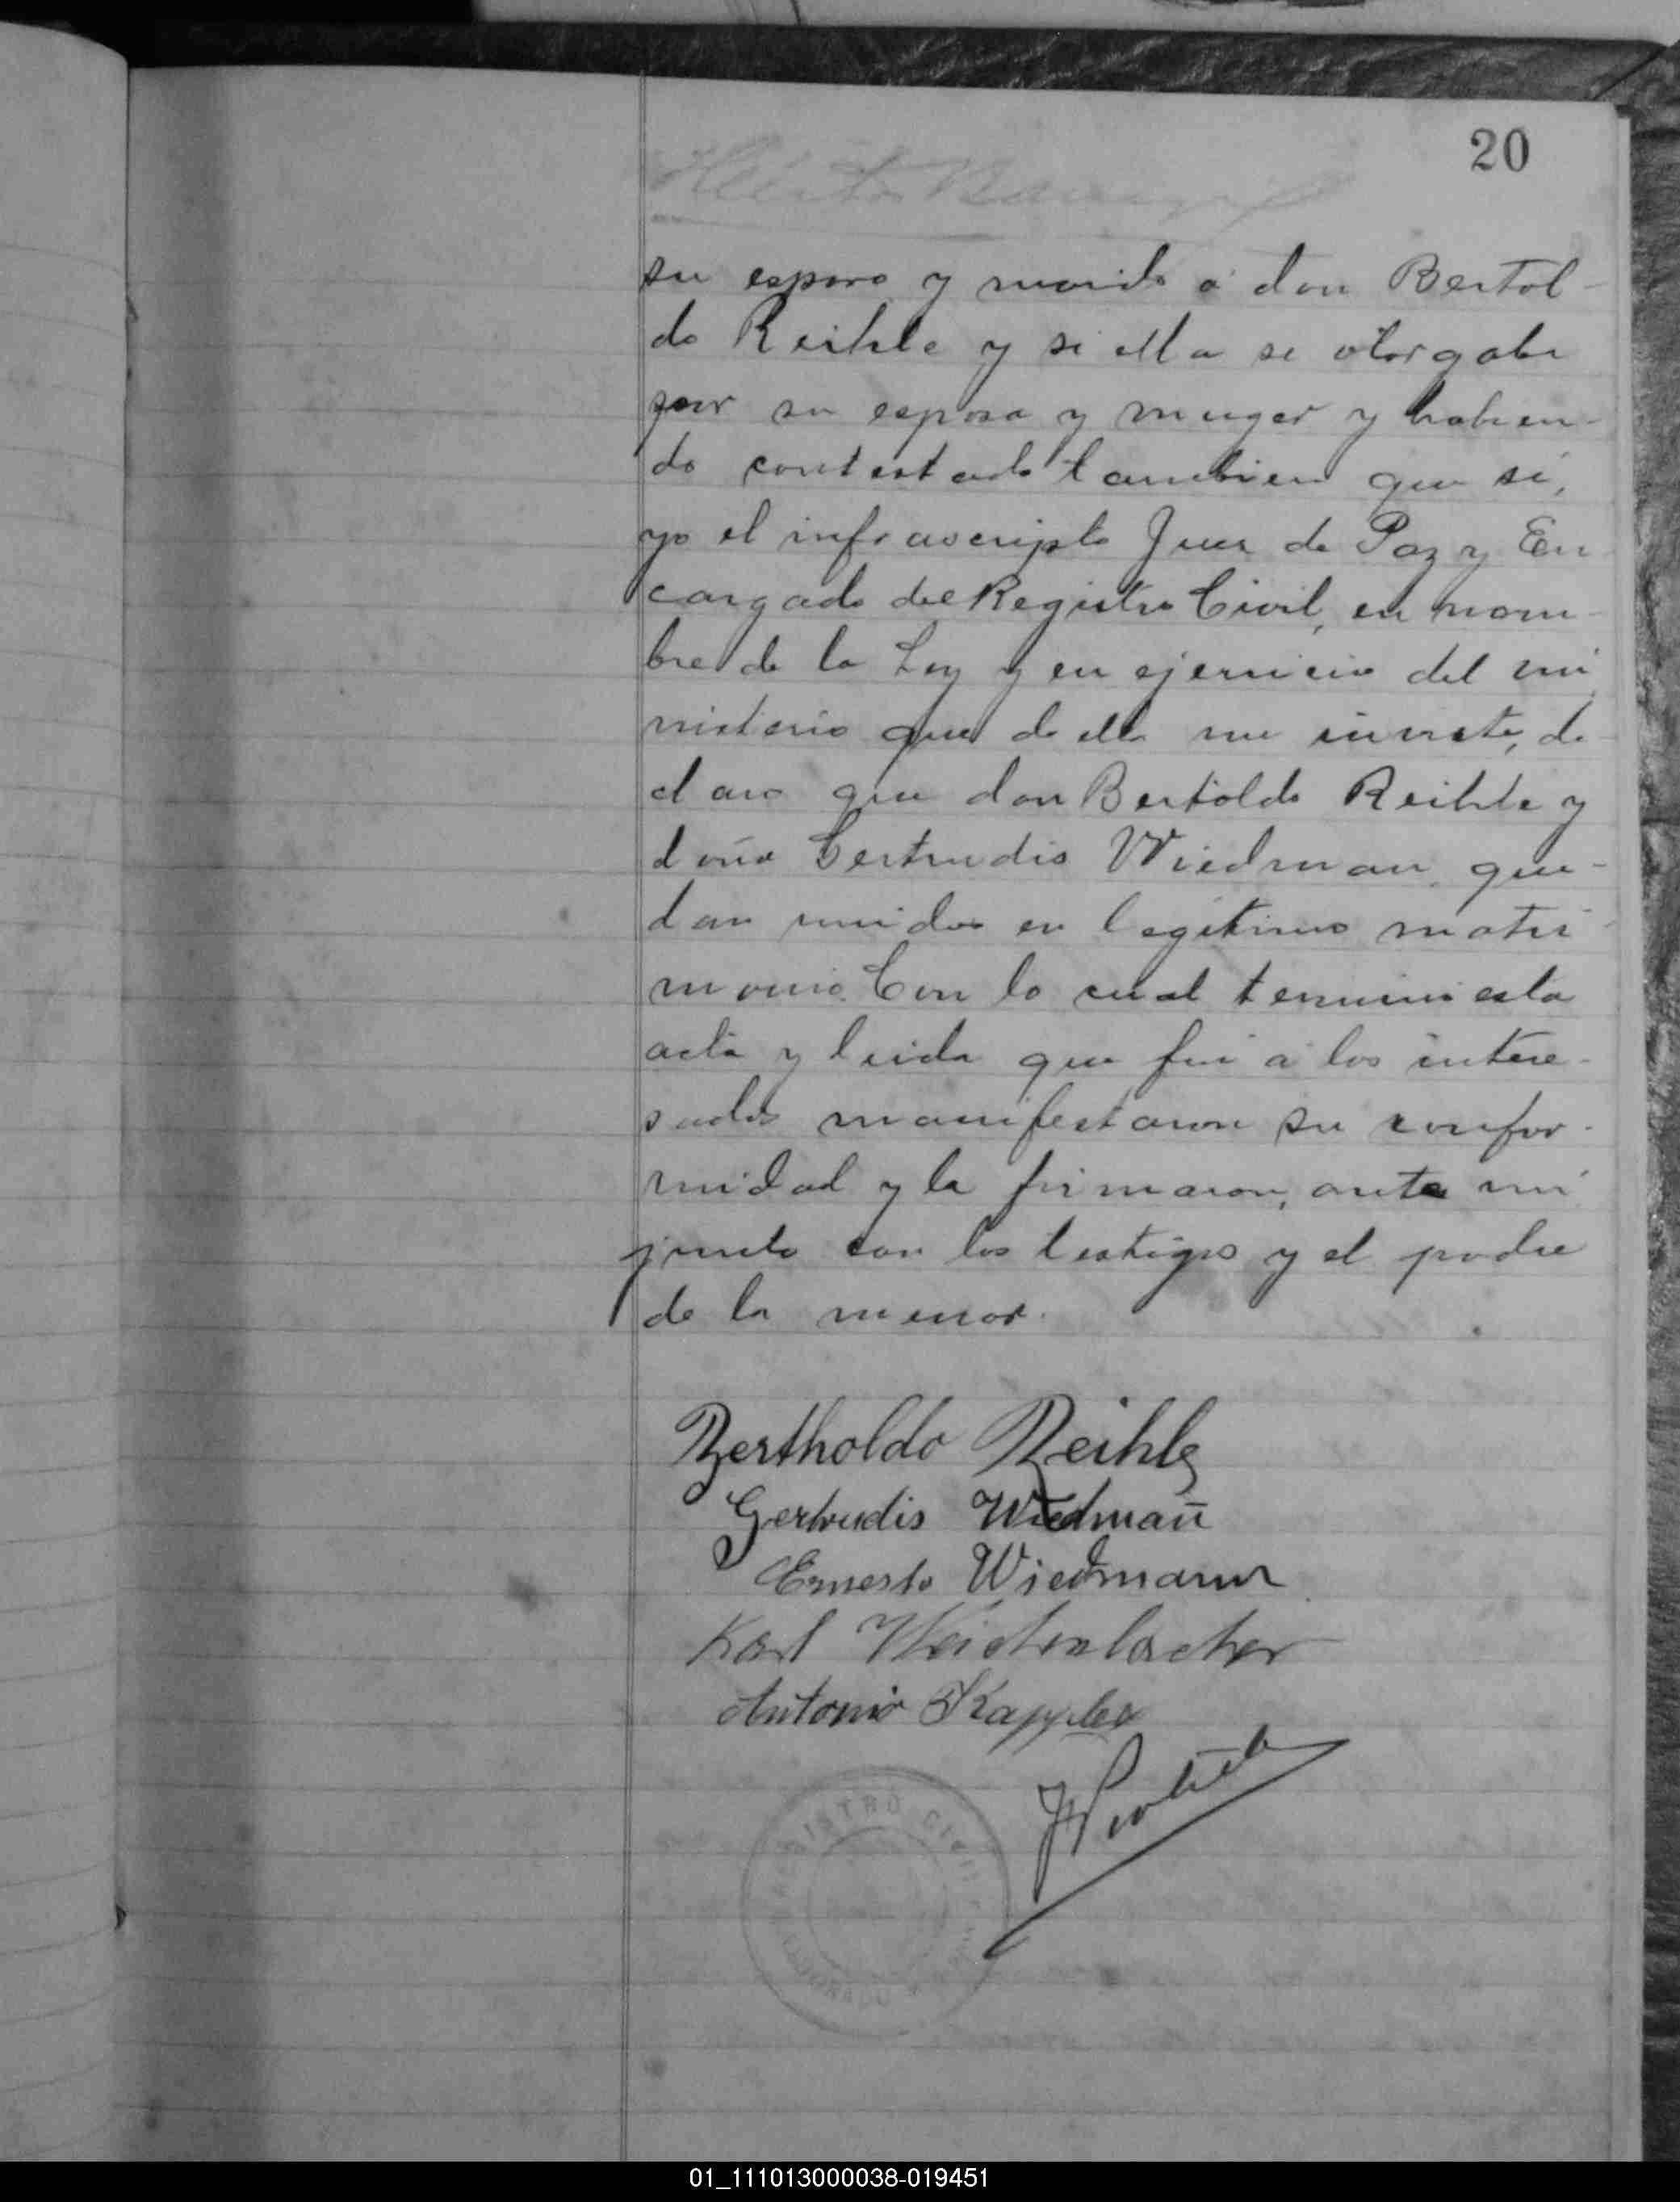 20
su esposo y marido á don Bertol-
do Reihle y si ella se otorgaba
por su esposa y muger y habien-
do contestado tambien que sí,
yo el infrascripto Juez de Paz y En
cargado del Registro Civil, en nom-
bre de la Ley y en ejercicio del mi
nisterio que de ella me inviste, de-
claro que don Bertoldo Reihle y
doña Gertrudis Wiedman que-
dan unidos en legítimo matri
monio. Con lo cual terminó esta
acta y leida que fué á los intere-
sados manifestaron su confor-
midad y la firmaron, ante mi
junto con los testigos y el padre
de la menor.
Bertholdo Reihle
Gertrudis Wiedman̄
Ernesto Wiedmann
Karl
Antonio Kappler
REGISTRO CIVIL
01_111013000038-019451